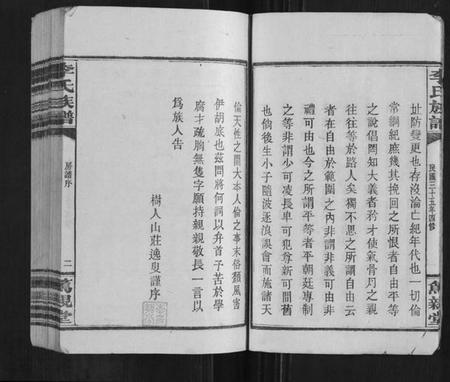 李氏族譜
民國三十五年四修
萬親堂
址防變更也存沒淪亡紀年代也一切倫
常綱紀庶幾其挽回之所恨者自由平等
之說倡閧知大義者矜才使氣骨肉之親
往往等於路人矣獨不思之所謂自由云
者在自由於範圍之內非謂非義可由非
禮可由也今之所謂平等者平朝廷專制
之等非謂少可凌長卑可犯尊新可間舊
也倘後生小子隨波逐浪誤會而施諸天
李氏族譜
房譜序
二
萬親堂
倫天性之間大本人倫之事末俗頹風害
伊胡底也茲問將何詞以弁首子苦於學
腐才疏胸無隻字願持親親敬長一言以
為族人告
樹人山莊逸叟謹序